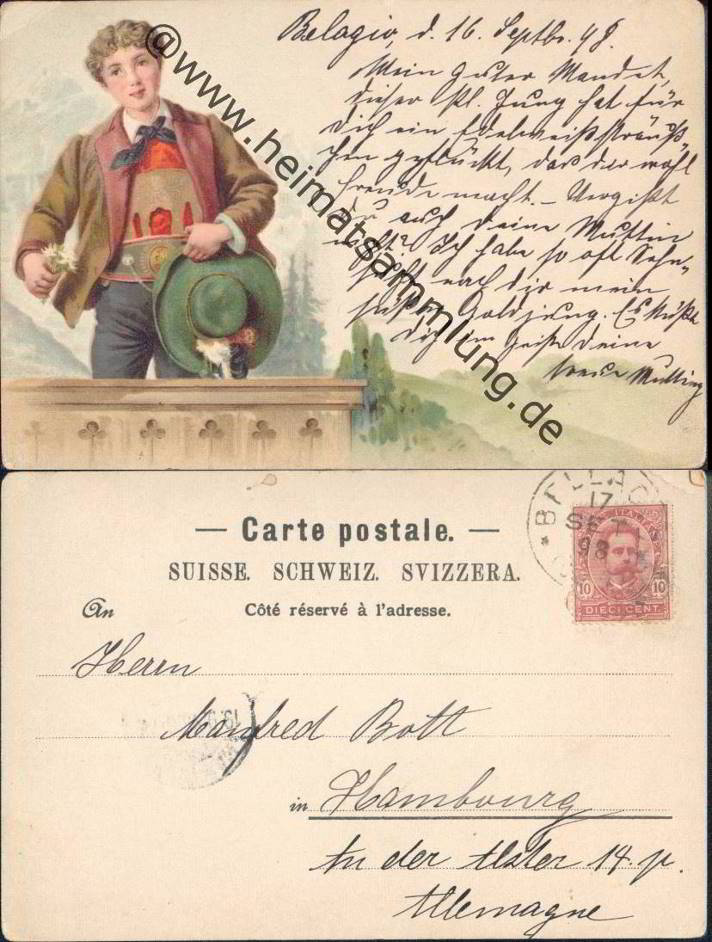 Belagio, d. 16. Septbr. 98.
Mein guter Mandel,
dieser kl. Jung hat für
dich ein Edelweißsträuß-
chen gepflückt, das dir wohl
Freude macht. – Vergißt
du auch deine Mutting
nicht? Ich habe so oft Sehn-
sucht nach dir mein
süßer Goldjung. Es küßt
dich im Geiste deine
treue Mutting
@www.heimatsammlung.de
— Carte postale. —
SUISSE. SCHWEIZ. SVIZZERA.
Côté réservé à l'adresse.
BELLAG
17
SET
98
ITALIAN
10 10
DIECI CENT.
An
Herrn
Manfred Bott
in Hambourg
An der Alster 14. p.
Allemagne